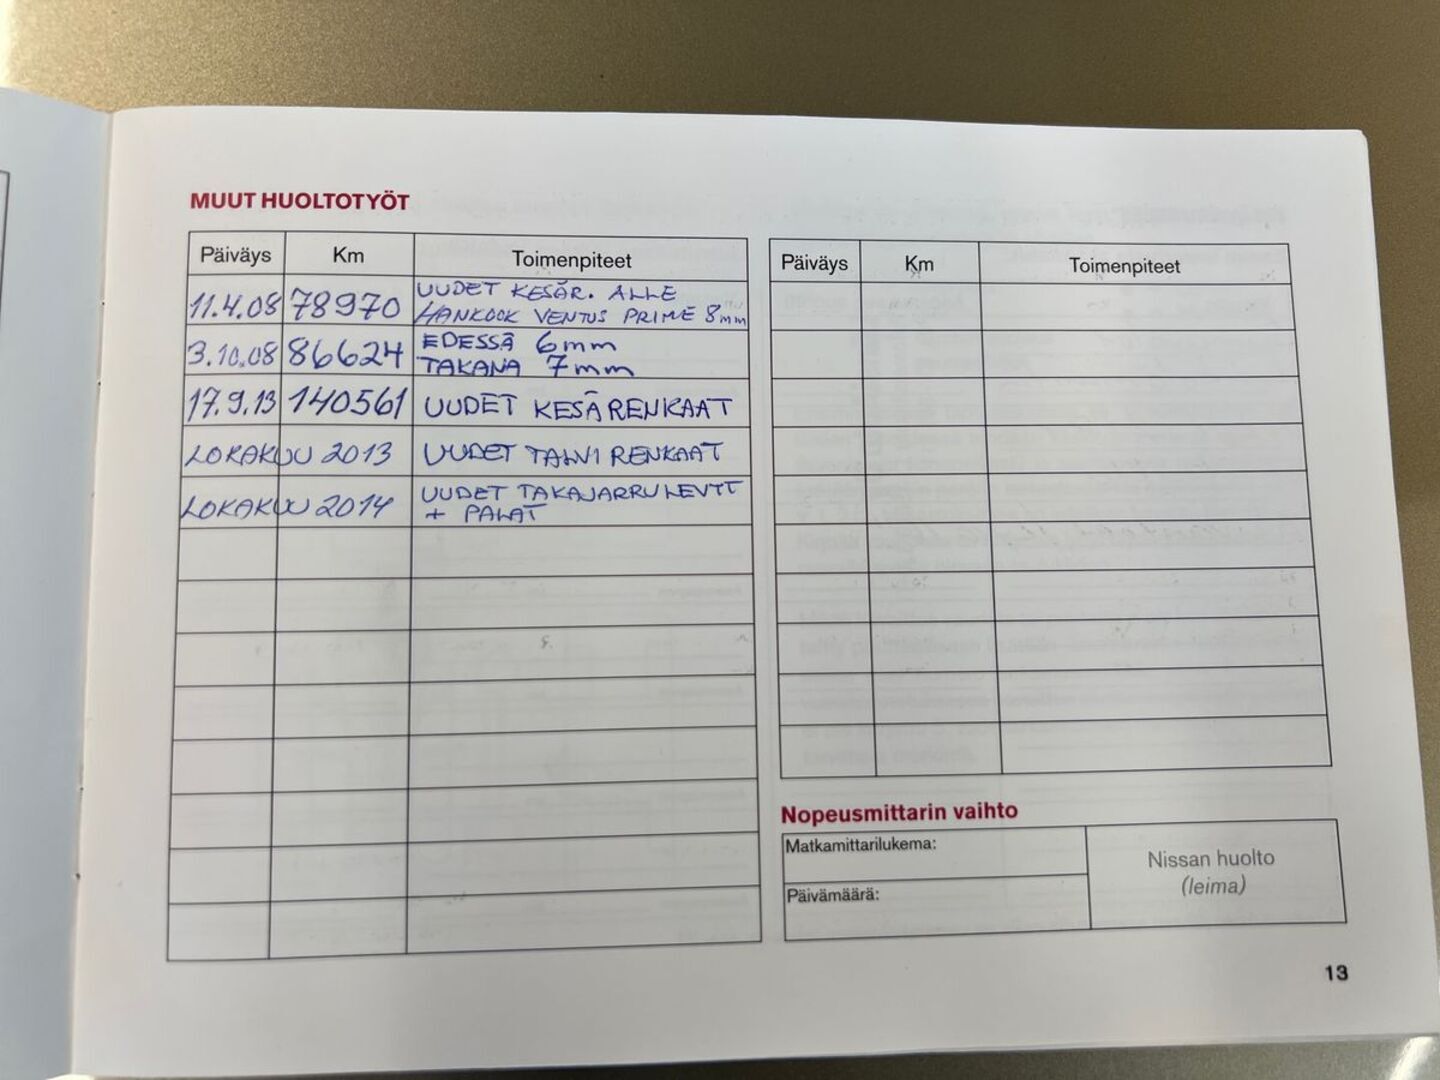 MUUT HUOLTOTYÖT
Päiväys Km Toimenpiteet
11.4.08 78970 UUDET KESÄR. ALLE
HANKOOK VENTUS PRIME 8mm
3.10.08 86624 EDESSÄ 6mm
TAKANA 7mm
17.9.13 140561 UUDET KESÄRENKAAT
LOKAKUU 2013 UUDET TALVIRENKAAT
LOKAKUU 2014 UUDET TAKAJARRULEVYT
+ PALAT
Päiväys Km Toimenpiteet
Nopeusmittarin vaihto
Matkamittarilukema:
Päivämäärä:
Nissan huolto
(leima)
13